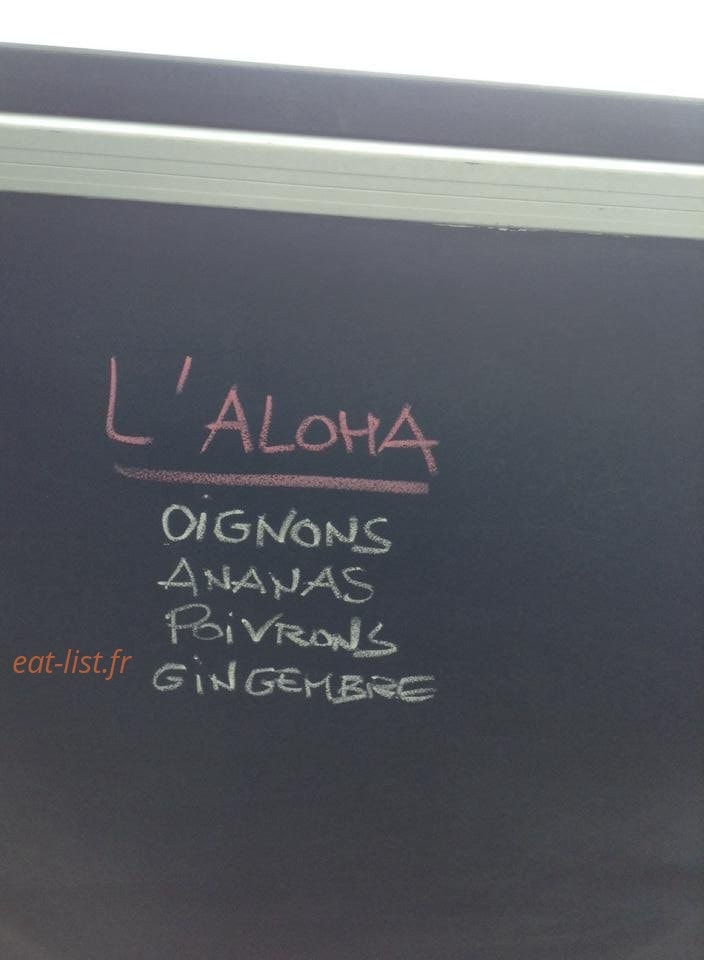 L'ALOHA
OIGNONS
ANANAS
POIVRONS
eat-list.fr
GINGEMBRE